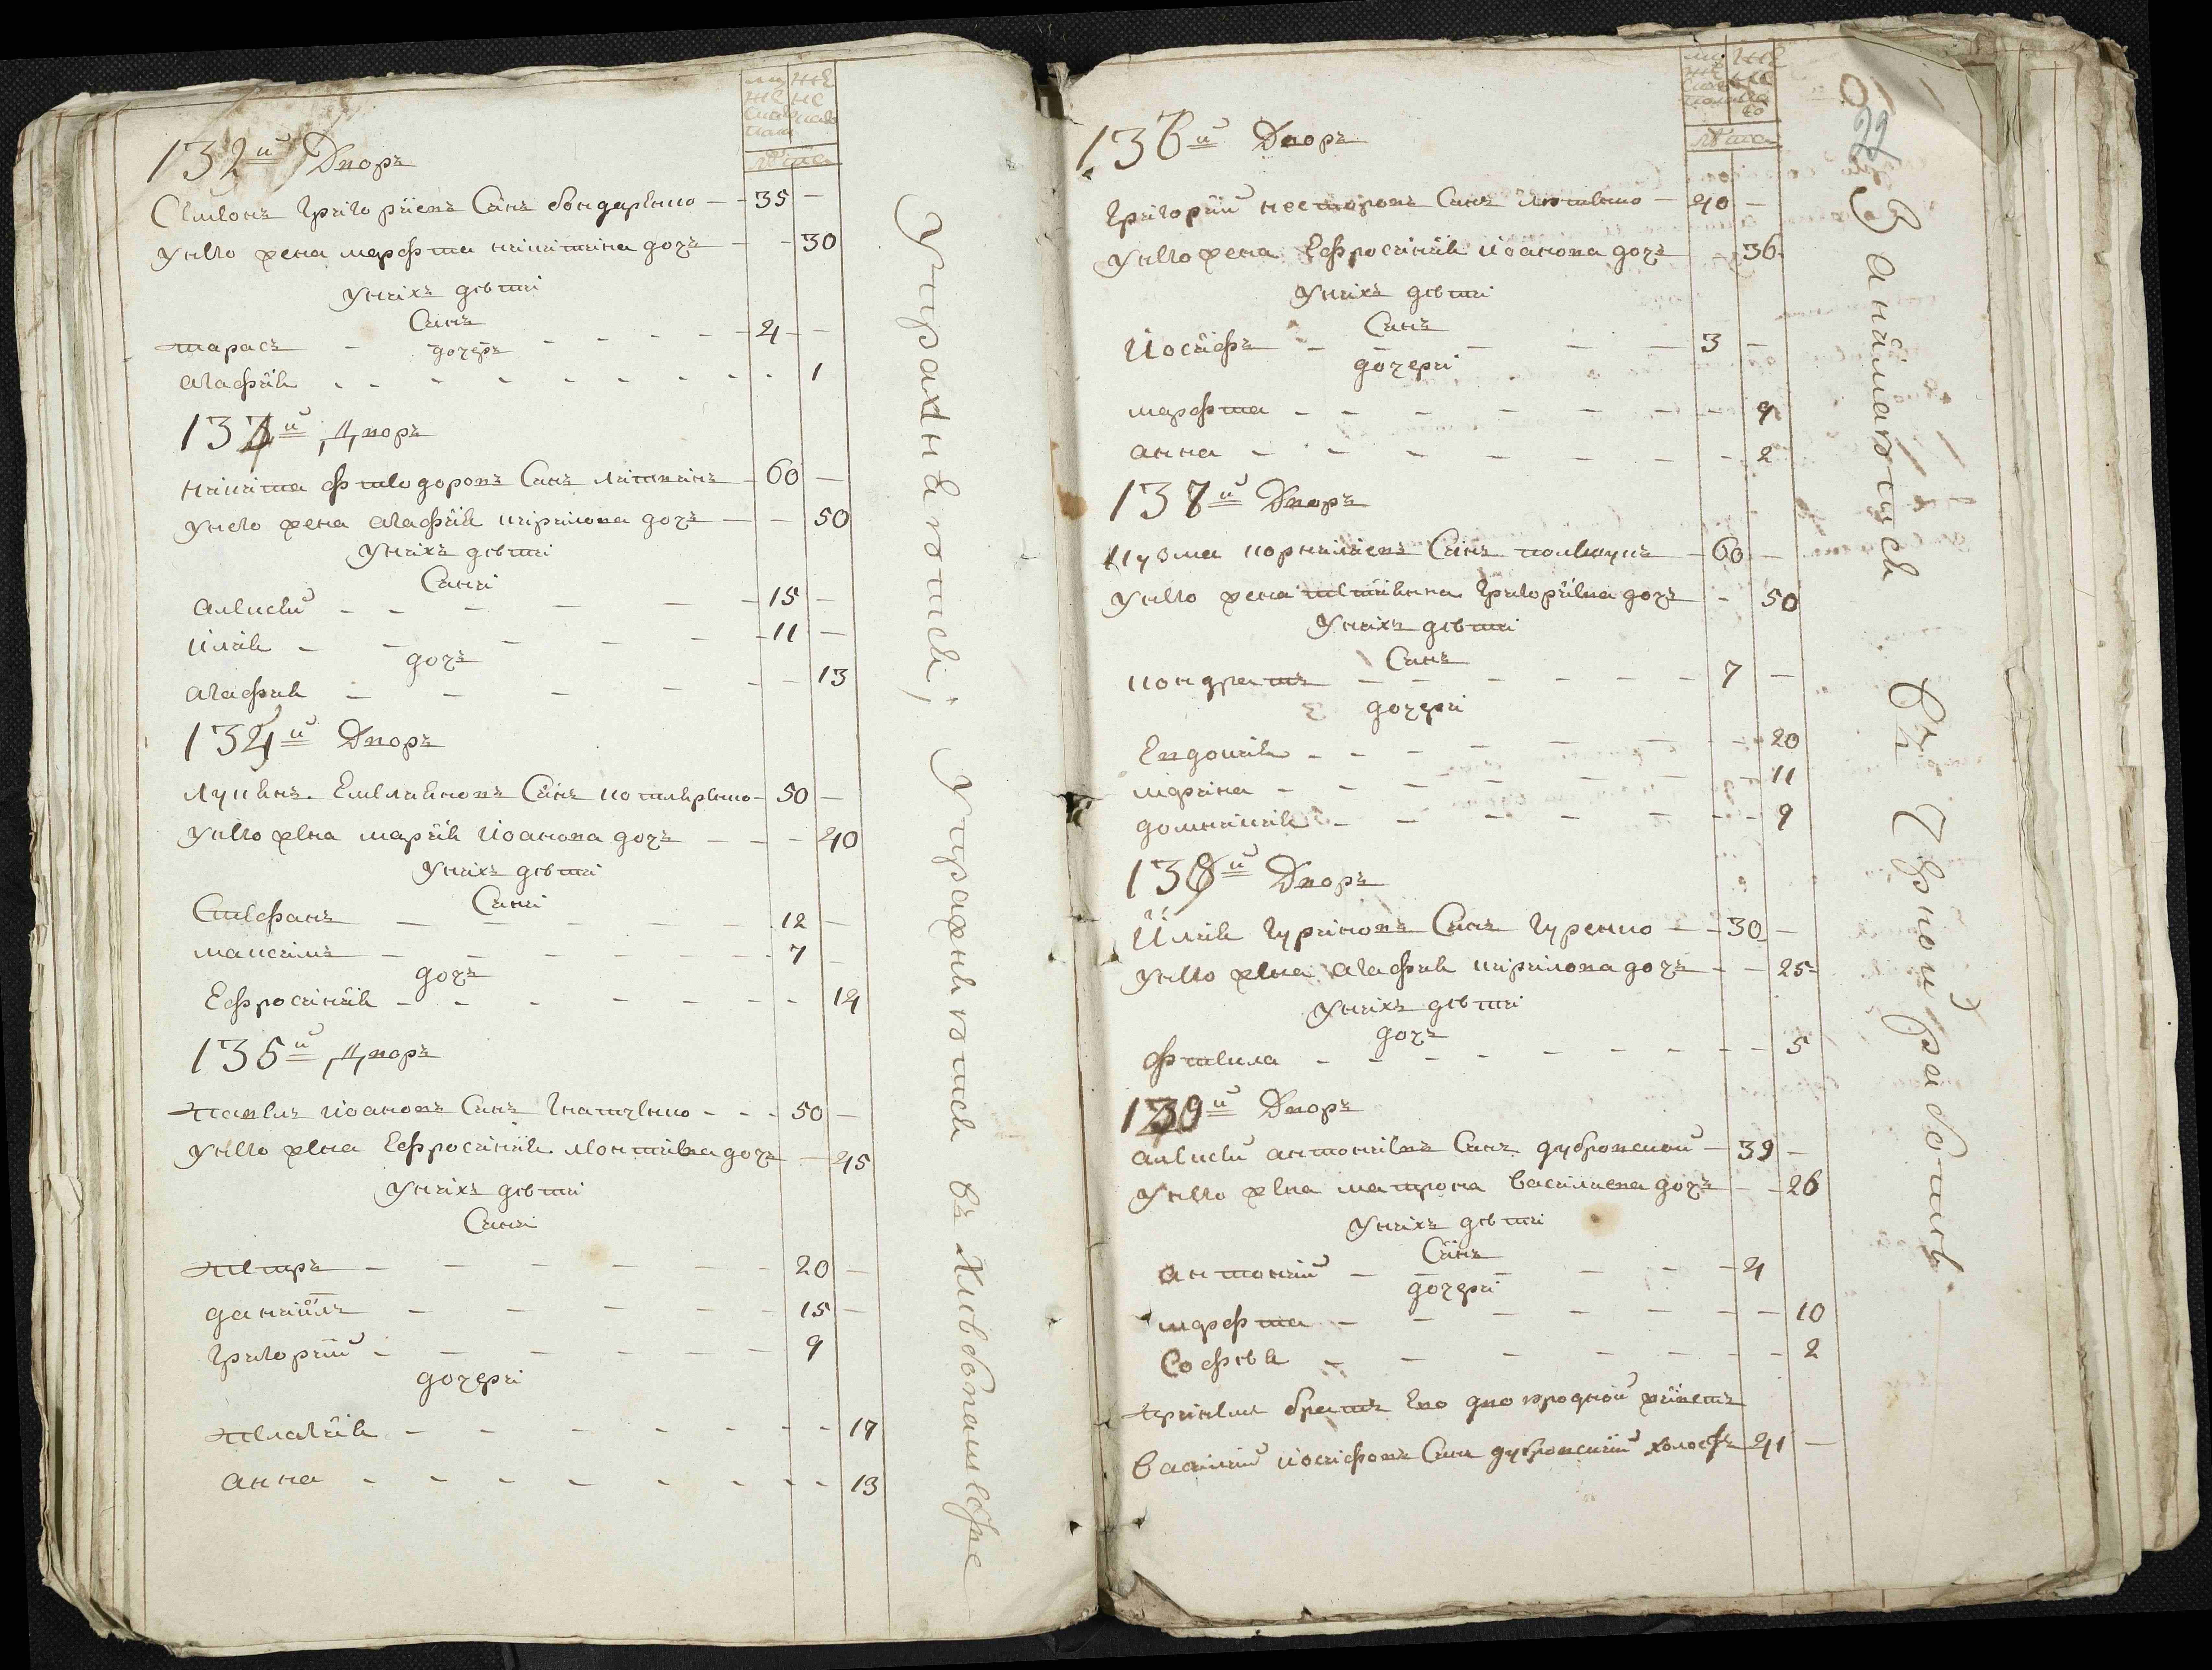 муже женс
ска полу
лѣта
132й Дворъ
Симонъ Григориевъ Синъ бондаренко 35
Унего жена марфта никитина дочъ 30
Унихъ дѣти
Синъ
тарасъ 4
дочеръ
агафия 1
133й Дворъ
никита фтеодоровъ Синъ литвинъ 60
Унего жена агафия кирилова дочъ 50
Унихъ дѣти
Сини
алексей 15
илия 11
дочъ
агафия 13
134й Дворъ
лукянъ Емелияновъ Синъ котляренко 50
Унего жена мария иоанова дочъ 40
Унихъ дѣти
Сини
Стефанъ 12
максимъ 7
дочъ
Ефросиния 14
135й Дворъ
павелъ иоановъ Синъ гнатченко 50
Унего жена Ефросиния леонтиева дочъ 45
Унихъ дѣти
Сини
петръ 20
даниилъ 15
григорий 9
дочери
пелагия 17
анна 13
Упражняются въ Хлѣбопашесрве
22
136й Дворъ
григорий несторовъ Синъ лютенко 40
Унего жена Ефросиния иоанова дочъ 36
Унихъ дѣти
Синъ
иосифъ 3
дочери
марфта 9
анна 2
137й Дворъ
кузма корнилиевъ Синъ полекунъ 60
Унего жена татияна григориева дочъ 50
Унихъ дѣти
Синъ
кондратъ 7
дочери
Евдокия 20
марина 11
домникия 9
138й Дворъ
илия гуриновъ Синъ гуренко 30
Унего жена агафия кирилова дочъ 25
Унихъ дѣти
дочъ
фтекла 5
139й Дворъ
алексей антониевъ Синъ дубровской 39
Унего жена матрона василиева дочъ 26
Унихъ дѣти
Синъ
антоний 4
дочери
марфта 10
Софѣя 2
принем братъ Его двоюродной живетъ
василий иосифовъ Синъ дубровский холостъ 41
Занимаются въ Чернои работнѣ